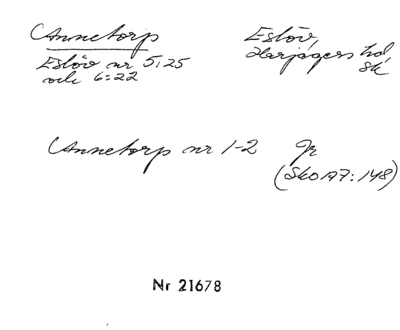 Annetorp
Eslöv nr 5:25
och 6:22
Eslöv,
Harjagers hd,
Sk
Annetorp nr 1-2 Jr
(SkO A7:148)
Nr 21678